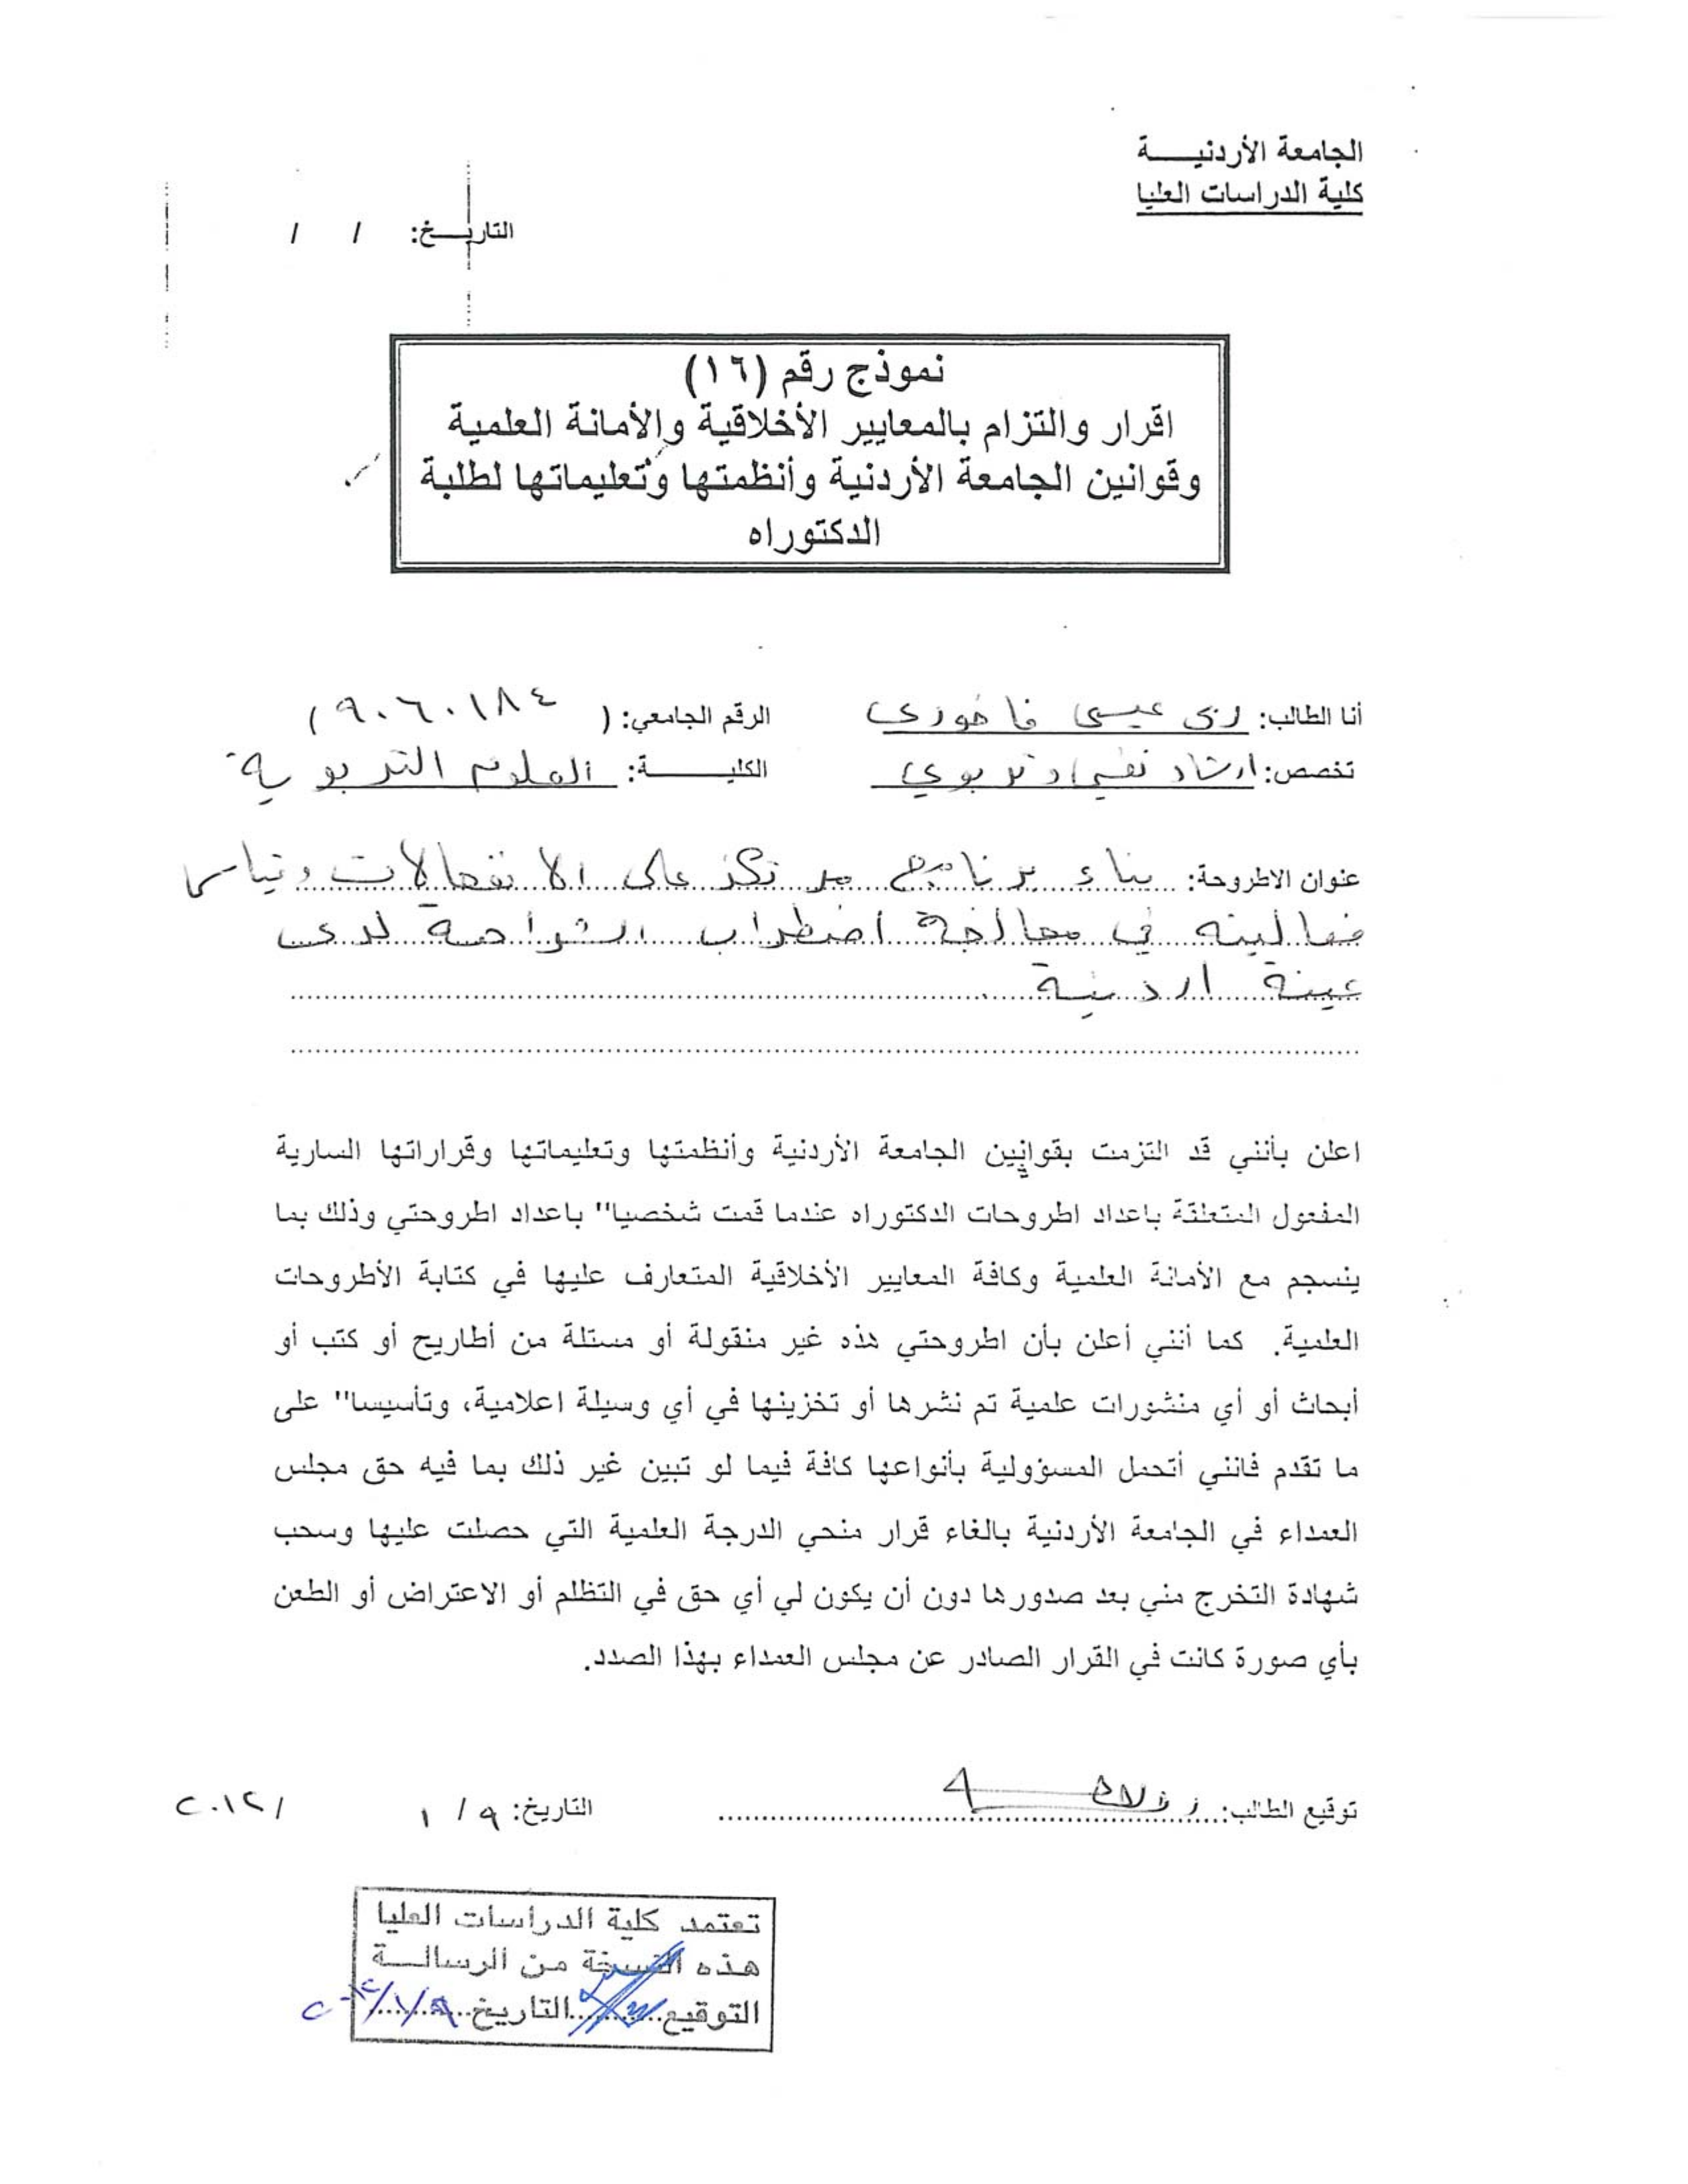 الجامعة الأردنيـــــة
كلية الدراسات العليا
التاريــخ: / /
نموذج رقم (١٦)
اقرار والتزام بالمعايير الأخلاقية والأمانة العلمية
وقوانين الجامعة الأردنية وأنظمتها وتعليماتها لطلبة
الدكتوراه
أنا الطالب: عيسى فاخوري الرقم الجامعي: ( ٩٠٦٠١٨٤ )
تخصص: ارشاد نفسي وتربوي الكليــــــة: العلوم التربوية
عنوان الاطروحة: بناء برنامج مرتكز على الانفعالات وقياس
فعاليته في معالجة اضطراب الشراهة لدى
عينة اردنية
اعلن بأنني قد التزمت بقوانين الجامعة الأردنية وأنظمتها وتعليماتها وقراراتها السارية
المفعول المتعلقة باعداد اطروحات الدكتوراه عندما قمت شخصيا" باعداد اطروحتي وذلك بما
ينسجم مع الأمانة العلمية وكافة المعايير الأخلاقية المتعارف عليها في كتابة الأطروحات
العلمية. كما أنني أعلن بأن اطروحتي هذه غير منقولة أو مستلة من أطاريح أو كتب أو
أبحاث أو أي منشورات علمية تم نشرها أو تخزينها في أي وسيلة اعلامية، وتأسيسا" على
ما تقدم فانني أتحمل المسؤولية بأنواعها كافة فيما لو تبين غير ذلك بما فيه حق مجلس
العمداء في الجامعة الأردنية بالغاء قرار منحي الدرجة العلمية التي حصلت عليها وسحب
شهادة التخرج مني بعد صدورها دون أن يكون لي أي حق في التظلم أو الاعتراض أو الطعن
بأي صورة كانت في القرار الصادر عن مجلس العمداء بهذا الصدد.
توقيع الطالب: التاريخ: ٩ / ١ /٢٠١٢
تعتمد كلية الدراسات العليا
هذه النسخة من الرسالــة
التوقيع التاريخ ٩/١/٢٠١٢